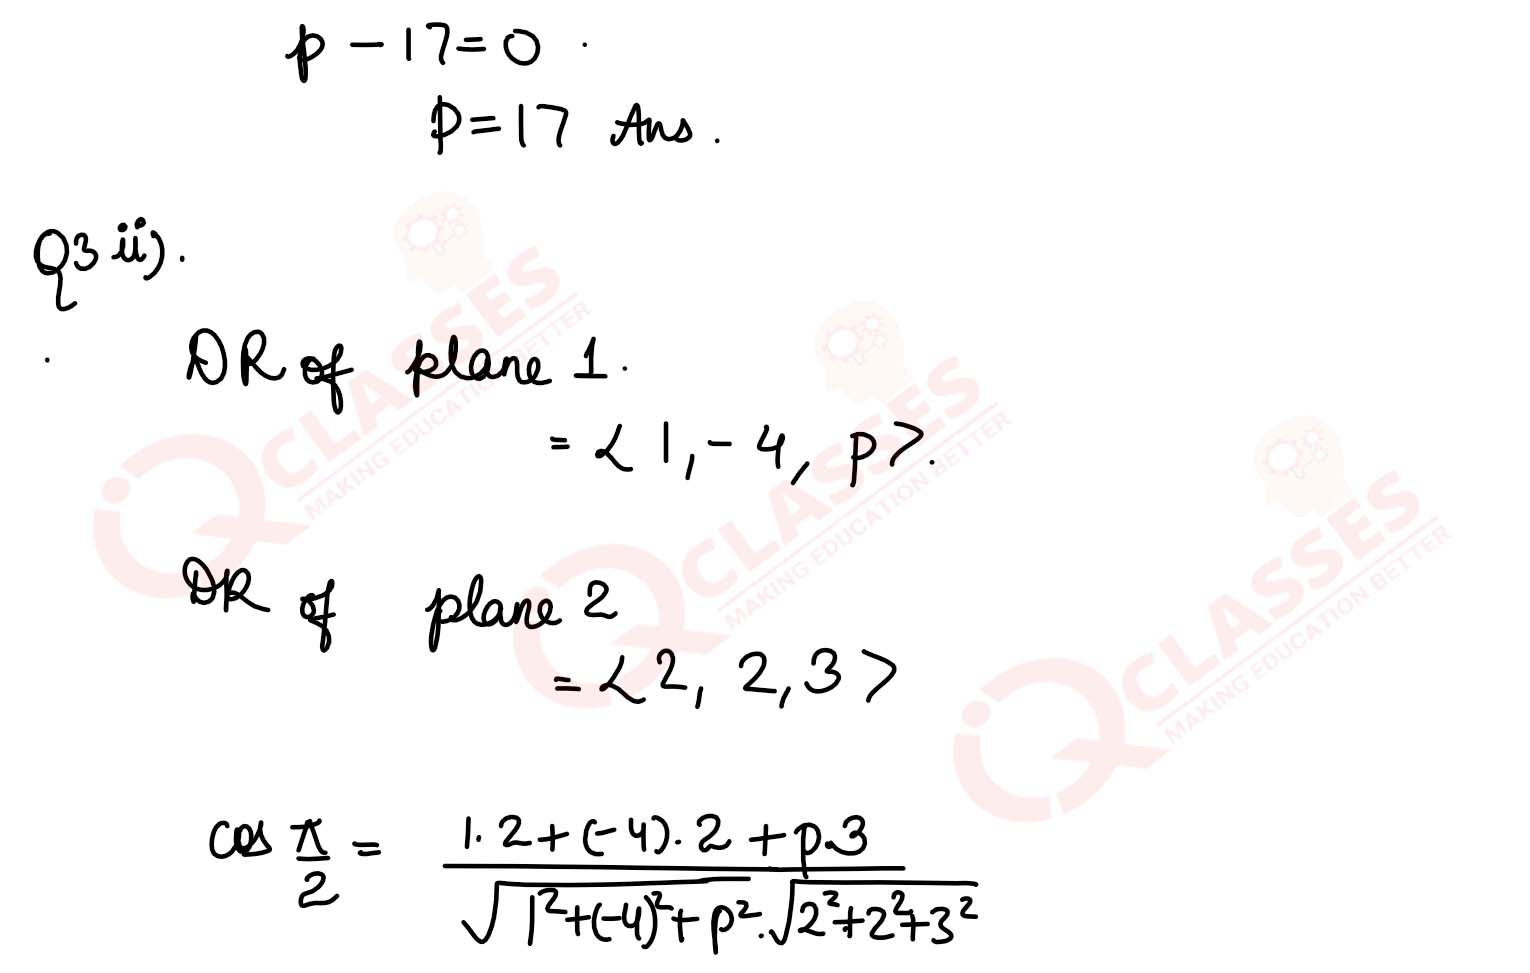 p - 17 = 0 .
p = 17 Ans .
Q3 ii) .
. DR of plane 1 .
= < 1, - 4, p > .
DR of plane 2
= < 2, 2, 3 >
cos π/2 = (1.2 + (-4).2 + p.3) / (√(1²+(-4)²+p²) . √(2²+2²+3²))
iQ CLASSES
MAKING EDUCATION BETTER
iQ CLASSES
MAKING EDUCATION BETTER
iQ CLASSES
MAKING EDUCATION BETTER